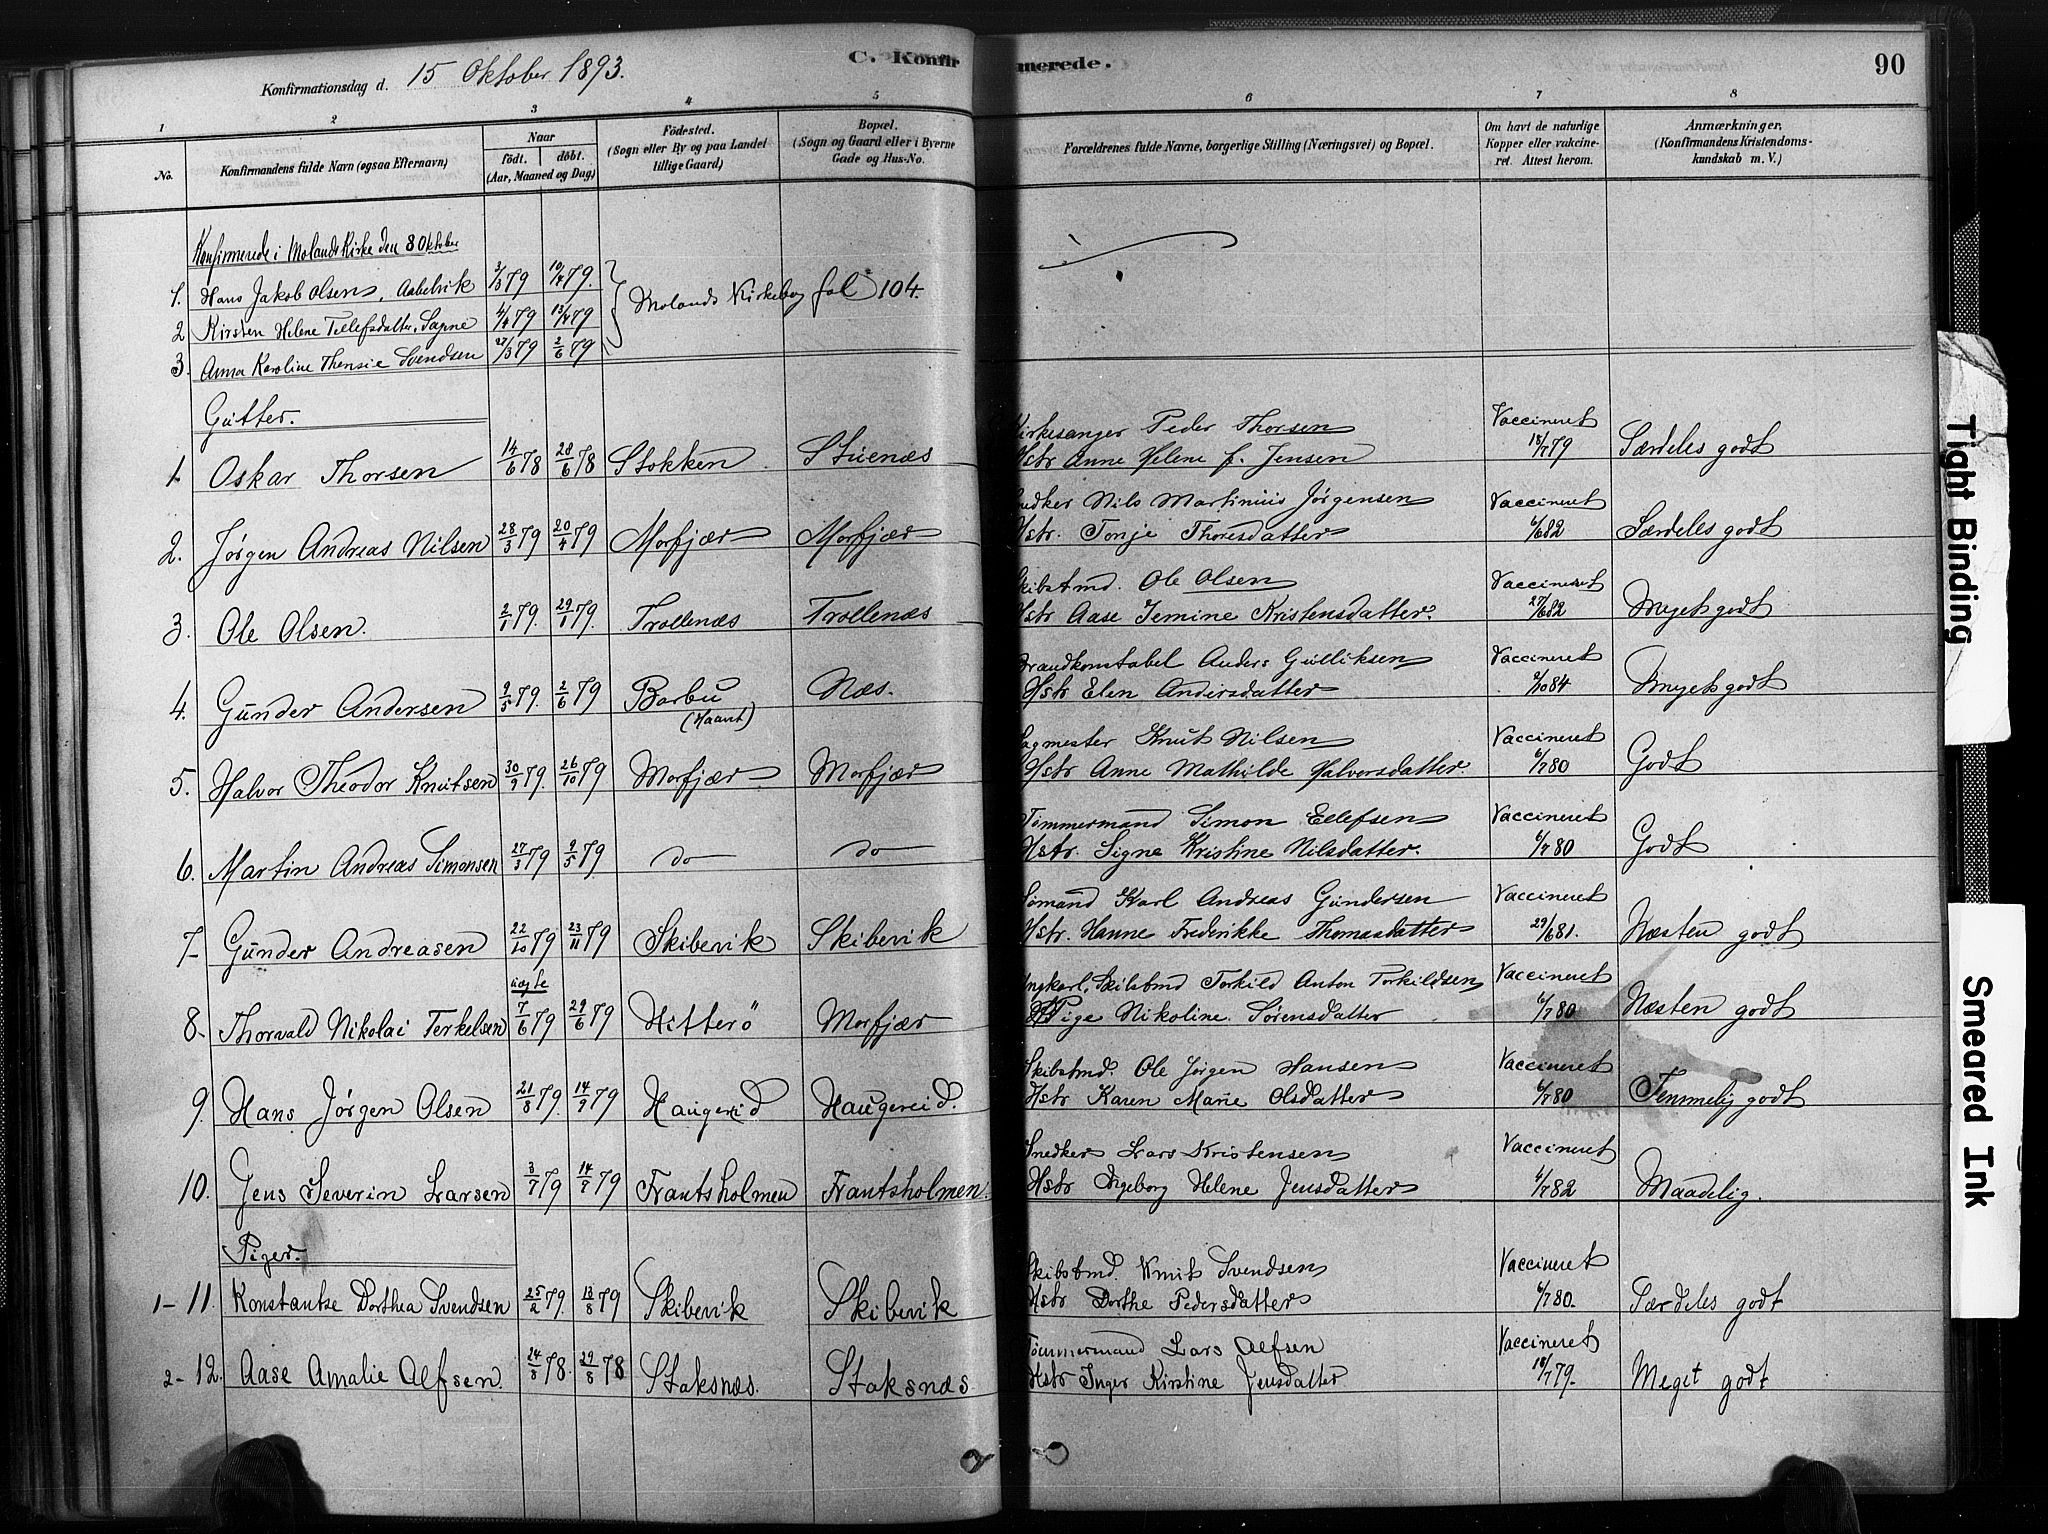 Konfirmationsdag d. 15 Oktober 1893.
C. Konfirmerede.
90
1 2 3 4 5 6 7 8
No.
Konfirmandens fulde Navn (ogsaa Efternavn)
Naar
født. døbt.
(Aar, Maaned og Dag)
Fødested.
(Sogn eller By og paa Landet
tillige Gaard)
Bopæl.
(Sogn og Gaard eller i Byerne
Gade og Hus-No.
Forældrenes fulde Navne, borgerlige Stilling (Næringsvei) og Bopæl.
Om havt de naturlige
Kopper eller vakcine-
ret. Attest herom.
Anmærkninger.
(Konfirmandens Kristendoms-
kundskab m. V.)
Konfirmerede i Molands Kirke den 8 Oktober
1. Hans Jakob Olsen, Aabelvik 3/3 79 10/4 79.
2 Kirsten Helene Tellefsdatter, Sagene 4/4 79 13/4 79
3. Anna Karoline Thensie Svendsen 22/3 79 2/6 79
Molands Kirkebog fol 104.
Gutter.
1. Oskar Thorsen 14/6 78 28/6 78 Stokken Stuenæs
Kirkesanger Peder Thorsen
Hstr Anne Helene f. Jensen
Vaccineret
18/7 79
Særdeles godt
2. Jørgen Andreas Nilsen 28/3 79 20/4 79 Morfjær Morfjær
Snedker Nils Martinius Jørgensen
Hstr. Tonje Thoresdatter
Vaccineret
6/6 82
Særdeles godt
3. Ole Olsen. 2/1 79. 29/1 79. Trollenæs Trollenæs
Skibstmd. Ole Olsen
Hstr Aase Jemine Kristensdatter.
Vaccineret
27/6 82
Meget godt
4. Gunder Andersen 9/5 79. 2/6 79 Barbu
(Haant)
Næs.
Brandkonstabel Anders Gulliksen
Hstr Elen Andersdatter
Vaccineret
9/10 84
Meget godt
5. Halvor Theodor Knutsen 30/9 79. 26/10 79 Morfjær Morfjær
Sagmester Knut Nilsen
Hstr Anne Mathilde Halvorsdatter.
Vaccineret
6/7 80
Godt
6. Martin Andreas Simonsen 27/3 79 9/5 79 do do
Tømmermand Simon Ellefsen
Hstr. Signe Kristine Nilsdatter.
Vaccineret
6/7 80
Godt
7- Gunder Andreasen 22/10 79 23/11 79 Skibevik Skibevik
Sømand Karl Andreas Gundersen
Hstr. Hanne Frederikke Thomasdatter
Vaccineret
29/6 81.
Næsten godt
uægte
8. Thorvald Nikolai Terkelsen 7/6 79 29/6 79 Hitterö Morfjær
Ungkarl, Skibstmd Torkild Anton Torkildsen
Pige Nikoline Sørensdatter
Vaccineret
6/7 80
Næsten godt
9. Hans Jørgen Olsen 21/8 79. 14/9 79 Haugereid Haugereid.
Skibstmd. Ole Jørgen Hansen
Hstr Karen Marie Olsdatter
Vaccineret
6/7 80
Temmelig godt
10. Jens Severin Larsen 3/7 79 14/7 79 Frantsholmen Frantsholmen.
Snedker Lars Kristensen
Hstr Ingeborg Helene Jensdatter
Vaccineret
4/7 82
Maadelig.
Piger.
1- 11. Konstantse Dorthea Svendsen 25/2 79. 13/8 79 Skibevik Skibevik
Skibstmd. Knut Svendsen
Hstr Dorthe Pedersdatter
Vaccineret
6/7 80.
Særdeles godt
2- 12. Aase Amalie Alfsen. 24/8 78 29/8 78 Staksnæs. Staksnæs
Tømmermand Lars Alfsen
Hstr Inger Kirstine Jensdatter
Vaccineret
18/7 79.
Meget godt
Tight Binding
Smeared Ink